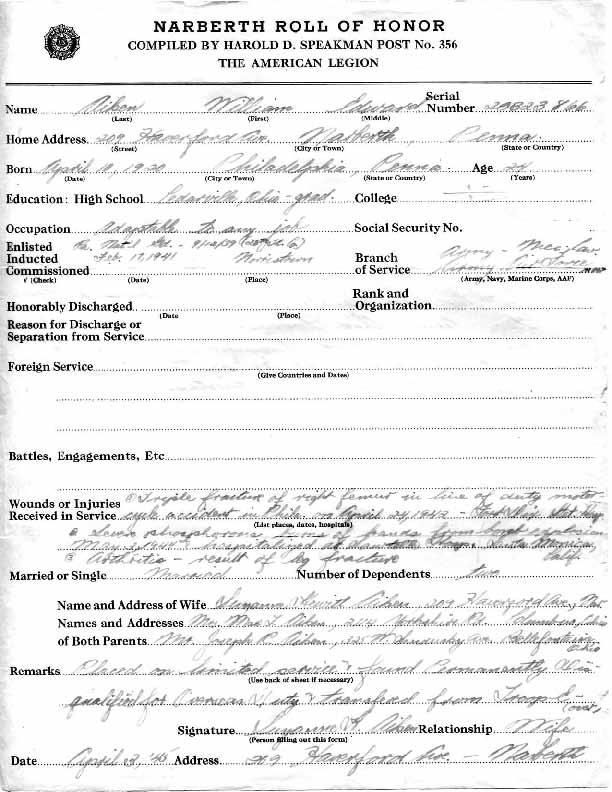 NARBERTH ROLL OF HONOR
COMPILED BY HAROLD D. SPEAKMAN POST No. 356
THE AMERICAN LEGION
Name Aiken William Edward Serial Number
(Last) (First) (Middle)
Home Address 209 Haverford Ave. Narberth Penna.
(Street) (City or Town) (State or Country)
Born April 1920 Philadelphia, Penna. Age 24
(Date) (City or Town) (State or Country) (Years)
Education: High School Cedarville, Ohio - grad. College
Occupation Adaptable to any job Social Security No.
Enlisted Pa. Nat'l Gd.
Inducted Feb. 17, 1941 Norristown Branch Army
Commissioned of Service
√ (Check) (Date) (Place) (Army, Navy, Marine Corps, AAF)
Rank and
Honorably Discharged Organization
(Date (Place)
Reason for Discharge or
Separation from Service
Foreign Service
(Give Countries and Dates)
Battles, Engagements, Etc
Wounds or Injuries Triple fracture of right femur in line of duty motor-
Received in Service cycle accident in Phila. on April 24, 1942
(List places, dates, hospitals)
phosphorous burns
hospitalized at Santa Monica, Calif.
Arthritis - result of leg fracture
Married or Single Married Number of Dependents two
Name and Address of Wife Suzanne Aiken 209 Haverford Ave., Nar.
Names and Addresses Mrs. Aiken, Columbus, Ohio
of Both Parents Mr. Joseph R. Aiken, 325 W. Sandusky Ave. Bellefontaine, Ohio
Remarks Placed on limited service & found Permanently Dis-
(Use back of sheet if necessary)
qualified for Overseas Duty & transferred from Troop E - (over)
Signature Suzanne Aiken Relationship Wife
(Person filling out this form)
Date April 13, '45 Address 209 Haverford Ave - Narberth